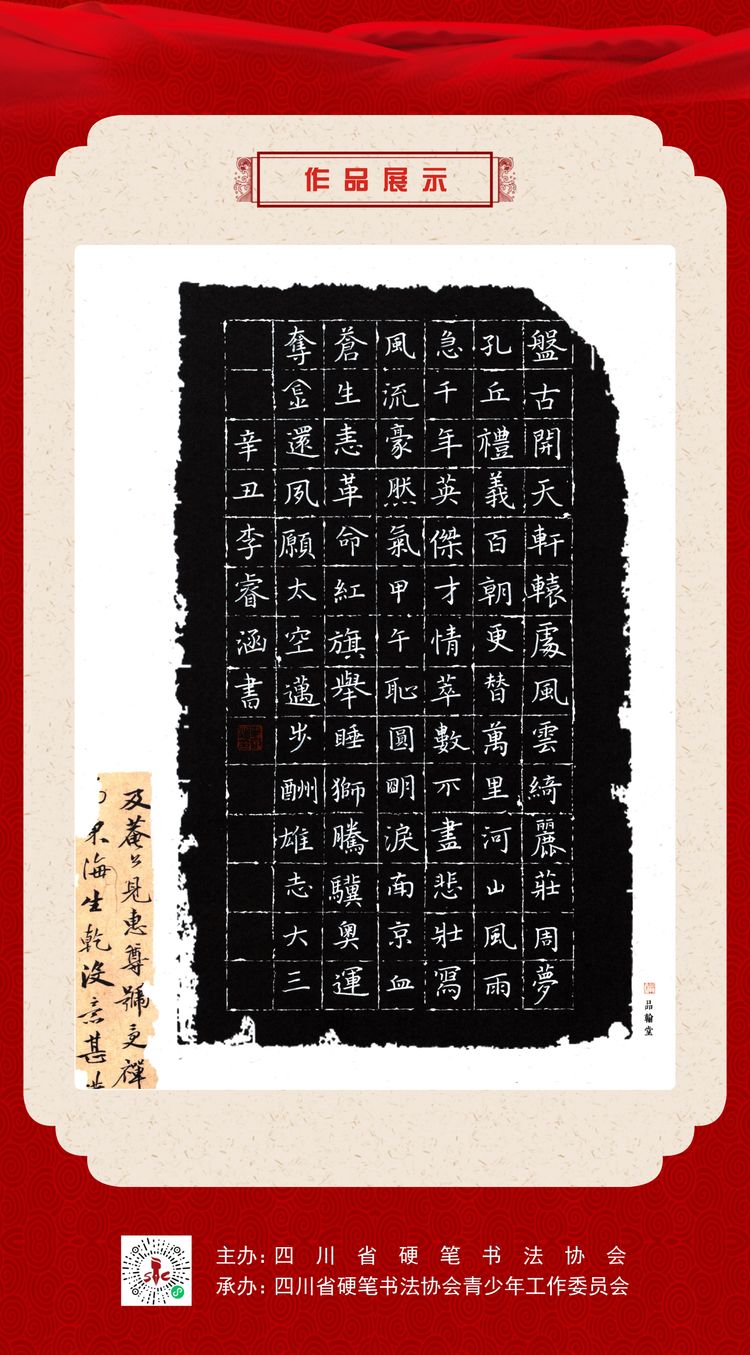 作品展示
盤古開天軒轅處風雲綺麗莊周夢
孔丘禮義百朝更替萬里河山風雨
急千年英傑才情萃數不盡悲壯寫
風流豪肰氣甲午恥圓明淚南京血
蒼生恚革命紅旗舉睡獅騰驥奧運
奪金還夙願太空邁步酬雄志大三
辛丑李睿涵書
品翰堂
及菴公見惠尊號更禪
海生乾没意甚
主办:四川省硬笔书法协会
承办:四川省硬笔书法协会青少年工作委员会